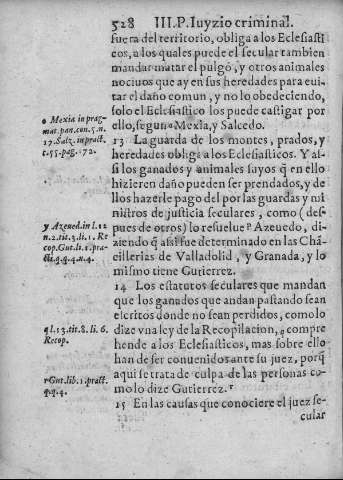 528 III.P. Iuyzio criminal.
fuera del territorio, obliga a los Eclesiasti
cos, a los quales puede el secular tambien
mandar matar el pulgõ, y otros animales
nociuos que ay en sus heredades para eui-
tar el daño comun, y no lo obedeciendo,
solo el Eclesiastico los puede castigar por
ello, segun º Mexia, y Salcedo.
o Mexia in prag-
mat. pan. con. 5. n.
17. Salz. in pract.
c. 55. pag. 172.
13 La guarda de los montes, prados, y
heredades obliga a los Eclesiasticos. Y as-
si los ganados y animales suyos q̃ en ello
hizieren daño pueden ser prendados, y de
llos hazerle pago del por las guardas y mi
nistros de justicia seculares, como (des-
pues de otros) lo resuelue p Azeuedo, di-
ziendo q̃ assi fue determinado en las Chã-
cillerias de Valladolid, y Granada, y lo
mismo tiene Gutierrez.
y Azeued. in l. 12
n. 2. tit. 3. li. 1. Re
cop. Gut. li. 1. pra-
cti. q. 4. n. 4.
14 Los estatutos seculares que mandan
que los ganados que andan pastando sean
escritos donde no sean perdidos, como lo
dize vna ley de la Recopilacion, q compre
hende a los Eclesiasticos, mas sobre ello
han de ser conuenidos ante su juez, porq̃
aqui se trata de culpa de las personas co-
mo lo dize Gutierrez. r
q l. 13. tit. 8. li. 6.
Recop.
r Gut. lib. 1. pract.
q. 4.
15 En las causas que conociere el juez se-
cular